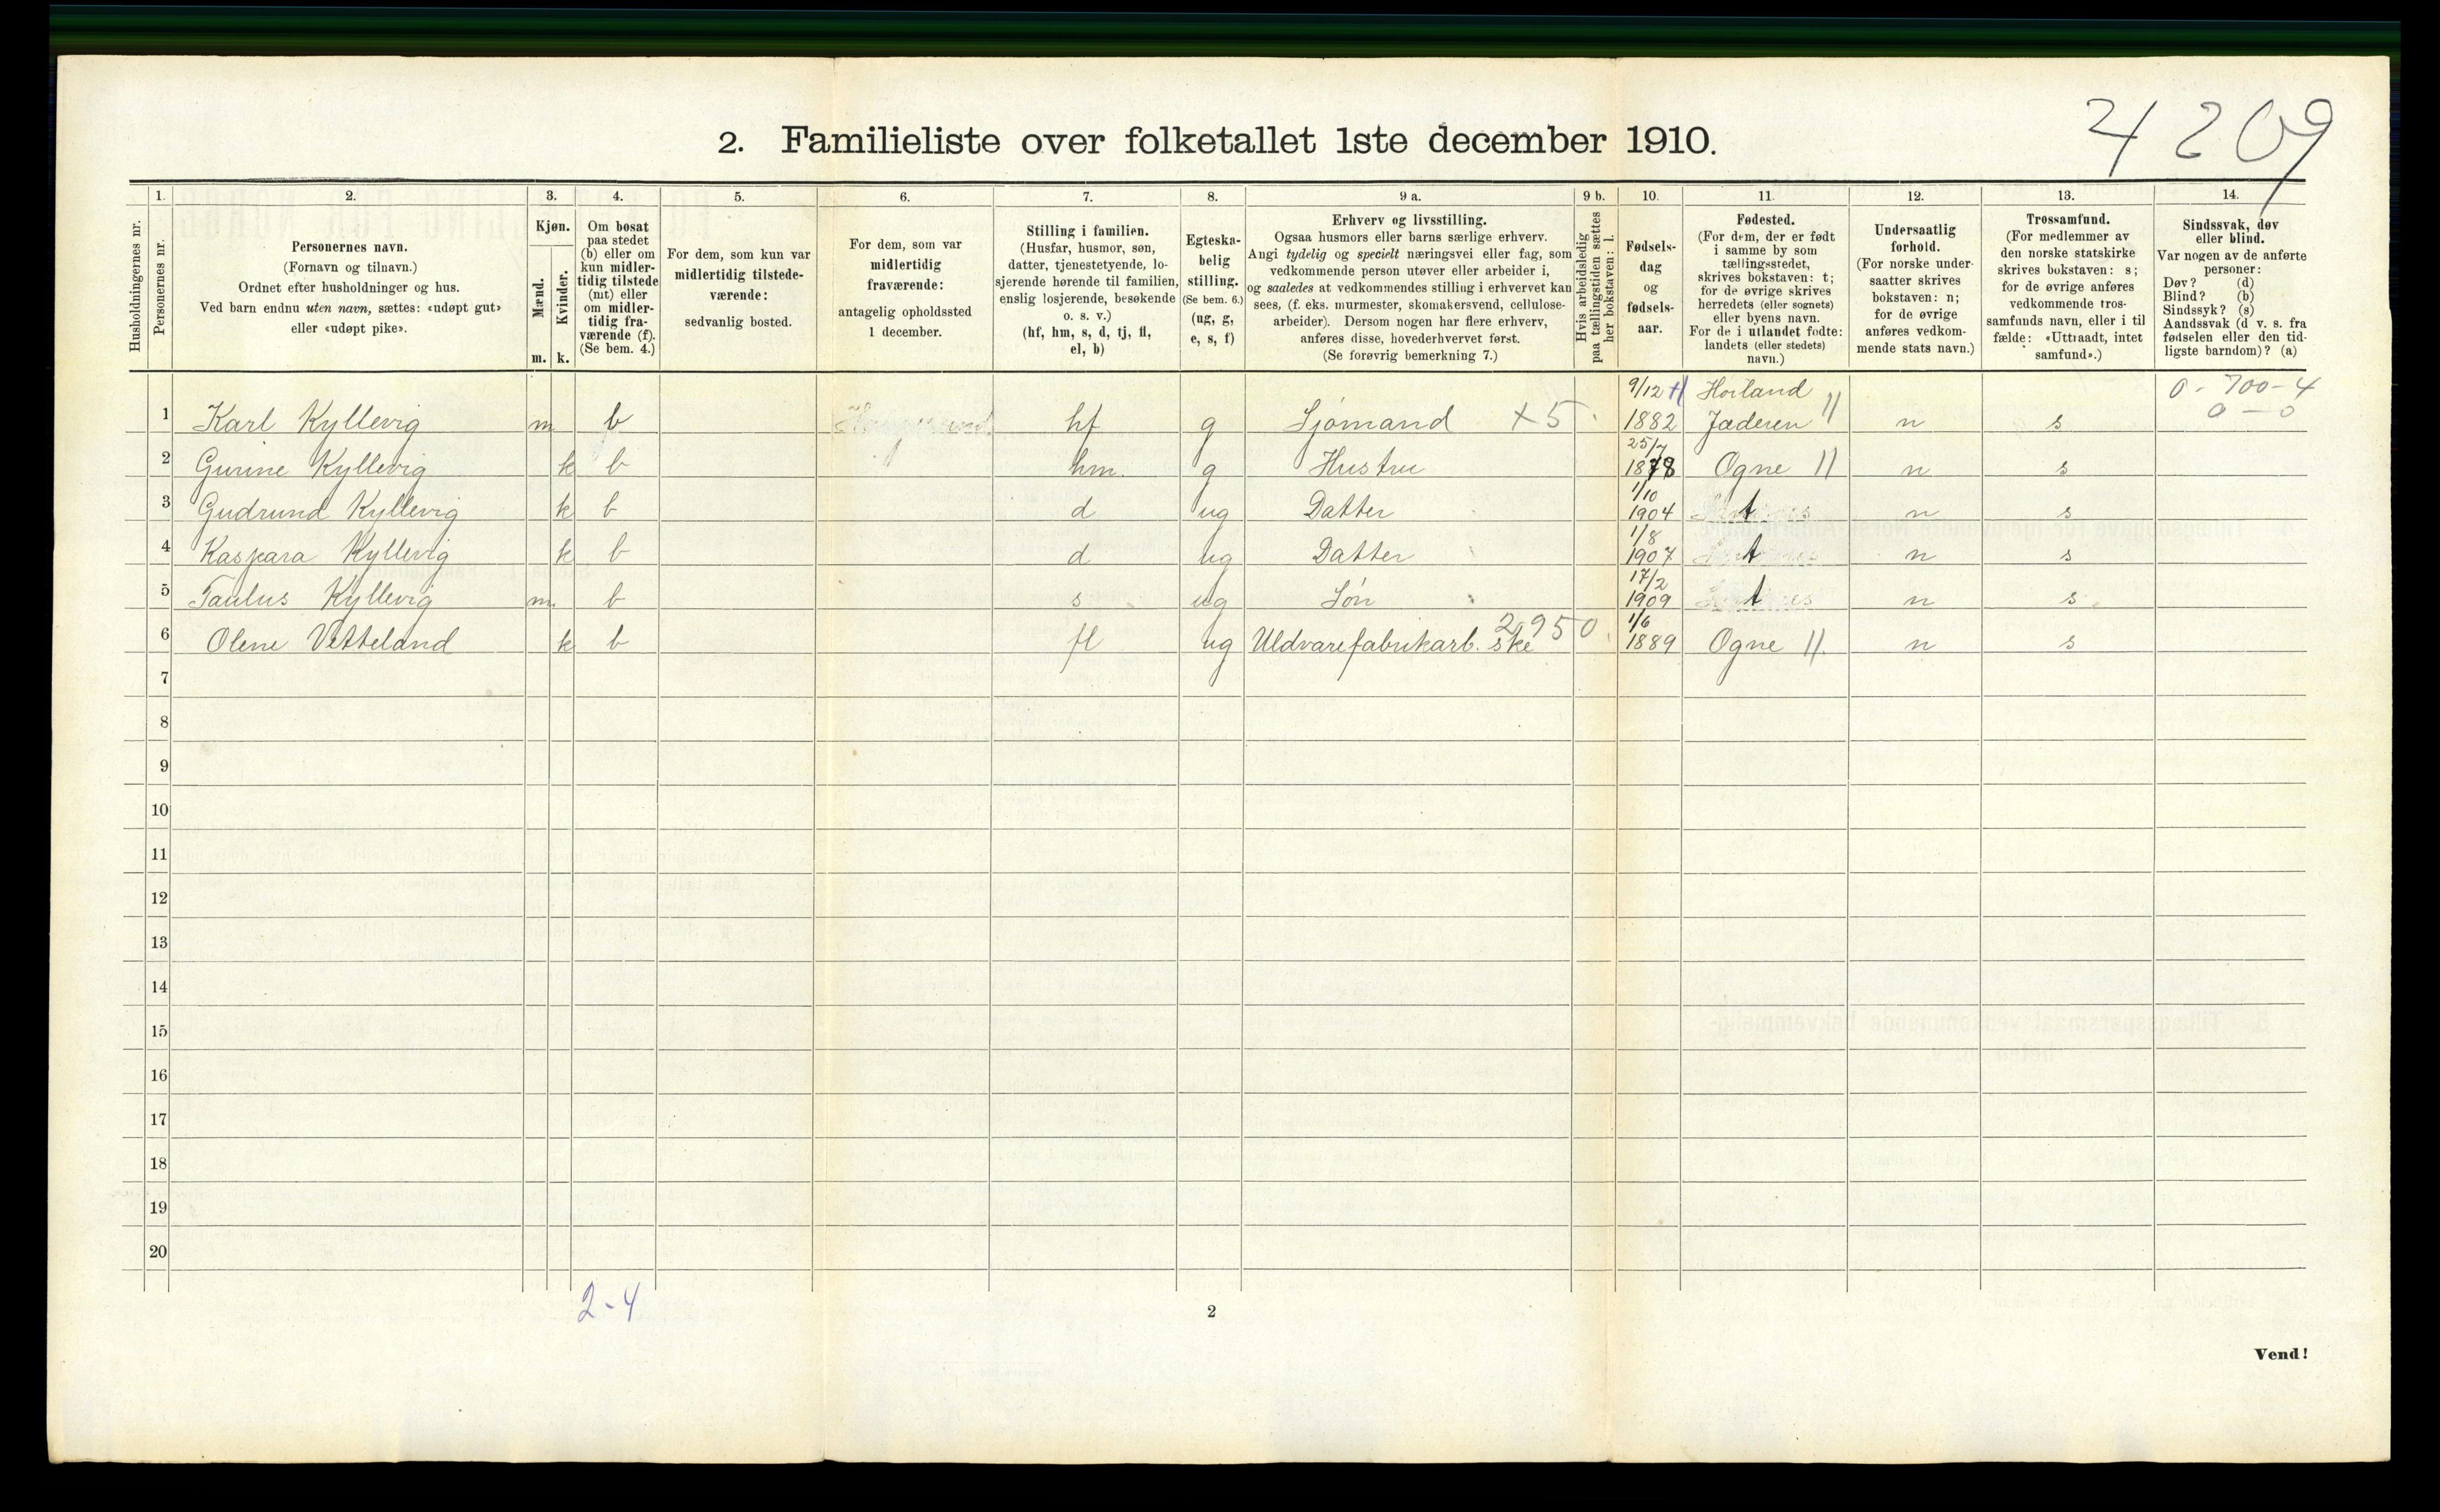 4209
2. Familieliste over folketallet 1ste december 1910.
Husholdningernes nr.
1.
Personernes nr.
2.
Personernes navn.
(Fornavn og tilnavn.)
Ordnet efter husholdninger og hus.
Ved barn endnu uten navn, sættes: «udøpt gut»
eller «udøpt pike».
3.
Kjøn.
Mænd.
Kvinder.
m. k.
4.
Om bosat
paa stedet
(b) eller om
kun midler-
tidig tilstede
(mt) eller
om midler-
tidig fra-
værende (f).
(Se bem. 4.)
5.
For dem, som kun var
midlertidig tilstede-
værende:
sedvanlig bosted.
6.
For dem, som var
midlertidig
fraværende:
antagelig opholdssted
1 december.
7.
Stilling i familien.
(Husfar, husmor, søn,
datter, tjenestetyende, lo-
sjerende hørende til familien,
enslig losjerende, besøkende
o. s. v.)
(hf, hm, s, d, tj, fl,
el, b)
8.
Egteska-
belig
stilling.
(Se bem. 6.)
(ug, g,
e, s, f)
9 a.
Erhverv og livsstilling.
Ogsaa husmors eller barns særlige erhverv.
Angi tydelig og specielt næringsvei eller fag, som
vedkommende person utøver eller arbeider i,
og saaledes at vedkommendes stilling i erhvervet kan
sees, (f. eks. murmester, skomakersvend, cellulose-
arbeider). Dersom nogen har flere erhverv,
anføres disse, hovederhvervet først.
(Se forøvrig bemerkning 7.)
9 b.
Hvis arbeidsledig
paa tællingstiden sættes
her bokstaven: l.
10.
Fødsels-
dag
og
fødsels-
aar.
11.
Fødested.
(For dem, der er født
i samme by som
tællingsstedet,
skrives bokstaven: t;
for de øvrige skrives
herredets (eller sognets)
eller byens navn.
For de i utlandet fødte:
landets (eller stedets)
navn.)
12.
Undersaatlig
forhold.
(For norske under-
saatter skrives
bokstaven: n;
for de øvrige
anføres vedkom-
mende stats navn.)
13.
Trossamfund.
(For medlemmer av
den norske statskirke
skrives bokstaven: s;
for de øvrige anføres
vedkommende tros-
samfunds navn, eller i til
fælde: «Uttraadt, intet
samfund».)
14.
Sindssvak, døv
eller blind.
Var nogen av de anførte
personer:
Døv? (d)
Blind? (b)
Sindssyk? (s)
Aandssvak (d v. s. fra
fødselen eller den tid-
ligste barndom)? (a)
9/12 Hoiland 0-700-4
1 Karl Kyllevig m b hf g Sjømand +5 1882 Jæderen n s 0-0
25/7
2 Gurine Kyllevig k b hm. g Hustru 1878 Ogne n s
1/10
3 Gudrund Kyllevig k b d ug Datter 1904 t n s
1/8
4 Kaspara Kyllevig k b d ug Datter 1907 t n s
17/2
5 Paulus Kyllevig m. b s ug Søn 1909 t n s
2950 1/6
6 Olene Vetteland k b fl ug Uldvarefabrikarb.ske 1889 Ogne n s
7
8
9
10
11
12
13
14
15
16
17
18
19
20
2-4
2
Vend!